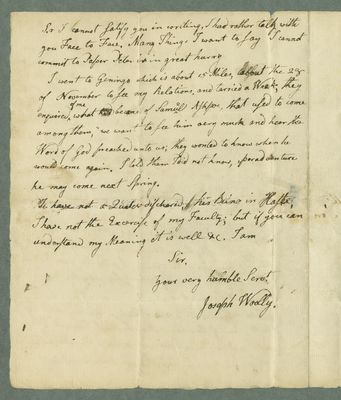 Sir I cannot satisfy you in writing, I had rather talk with
you Face to Face, Many Things I want to say I cannot
commit to Paper Peter is in great hurry
I went to Geninga which is about 15 Miles, about the 28
of November to see my Relations, and tarried a Week, they
enquired of me what became of Samuel Ashpo, that used to come
among them, we want to see him very much and hear the
Word of God preached unto us; they wanted to know when he
would come again, I told them I did not know, peradventure
he may come next Spring.
I have not a Quarter discharged, this Being in Haste,
I have not the Exercise of my Faculty; but if you can
understand my Meaning it is well &c. I am
Sir,
your very humble Servt
Joseph Woolly.